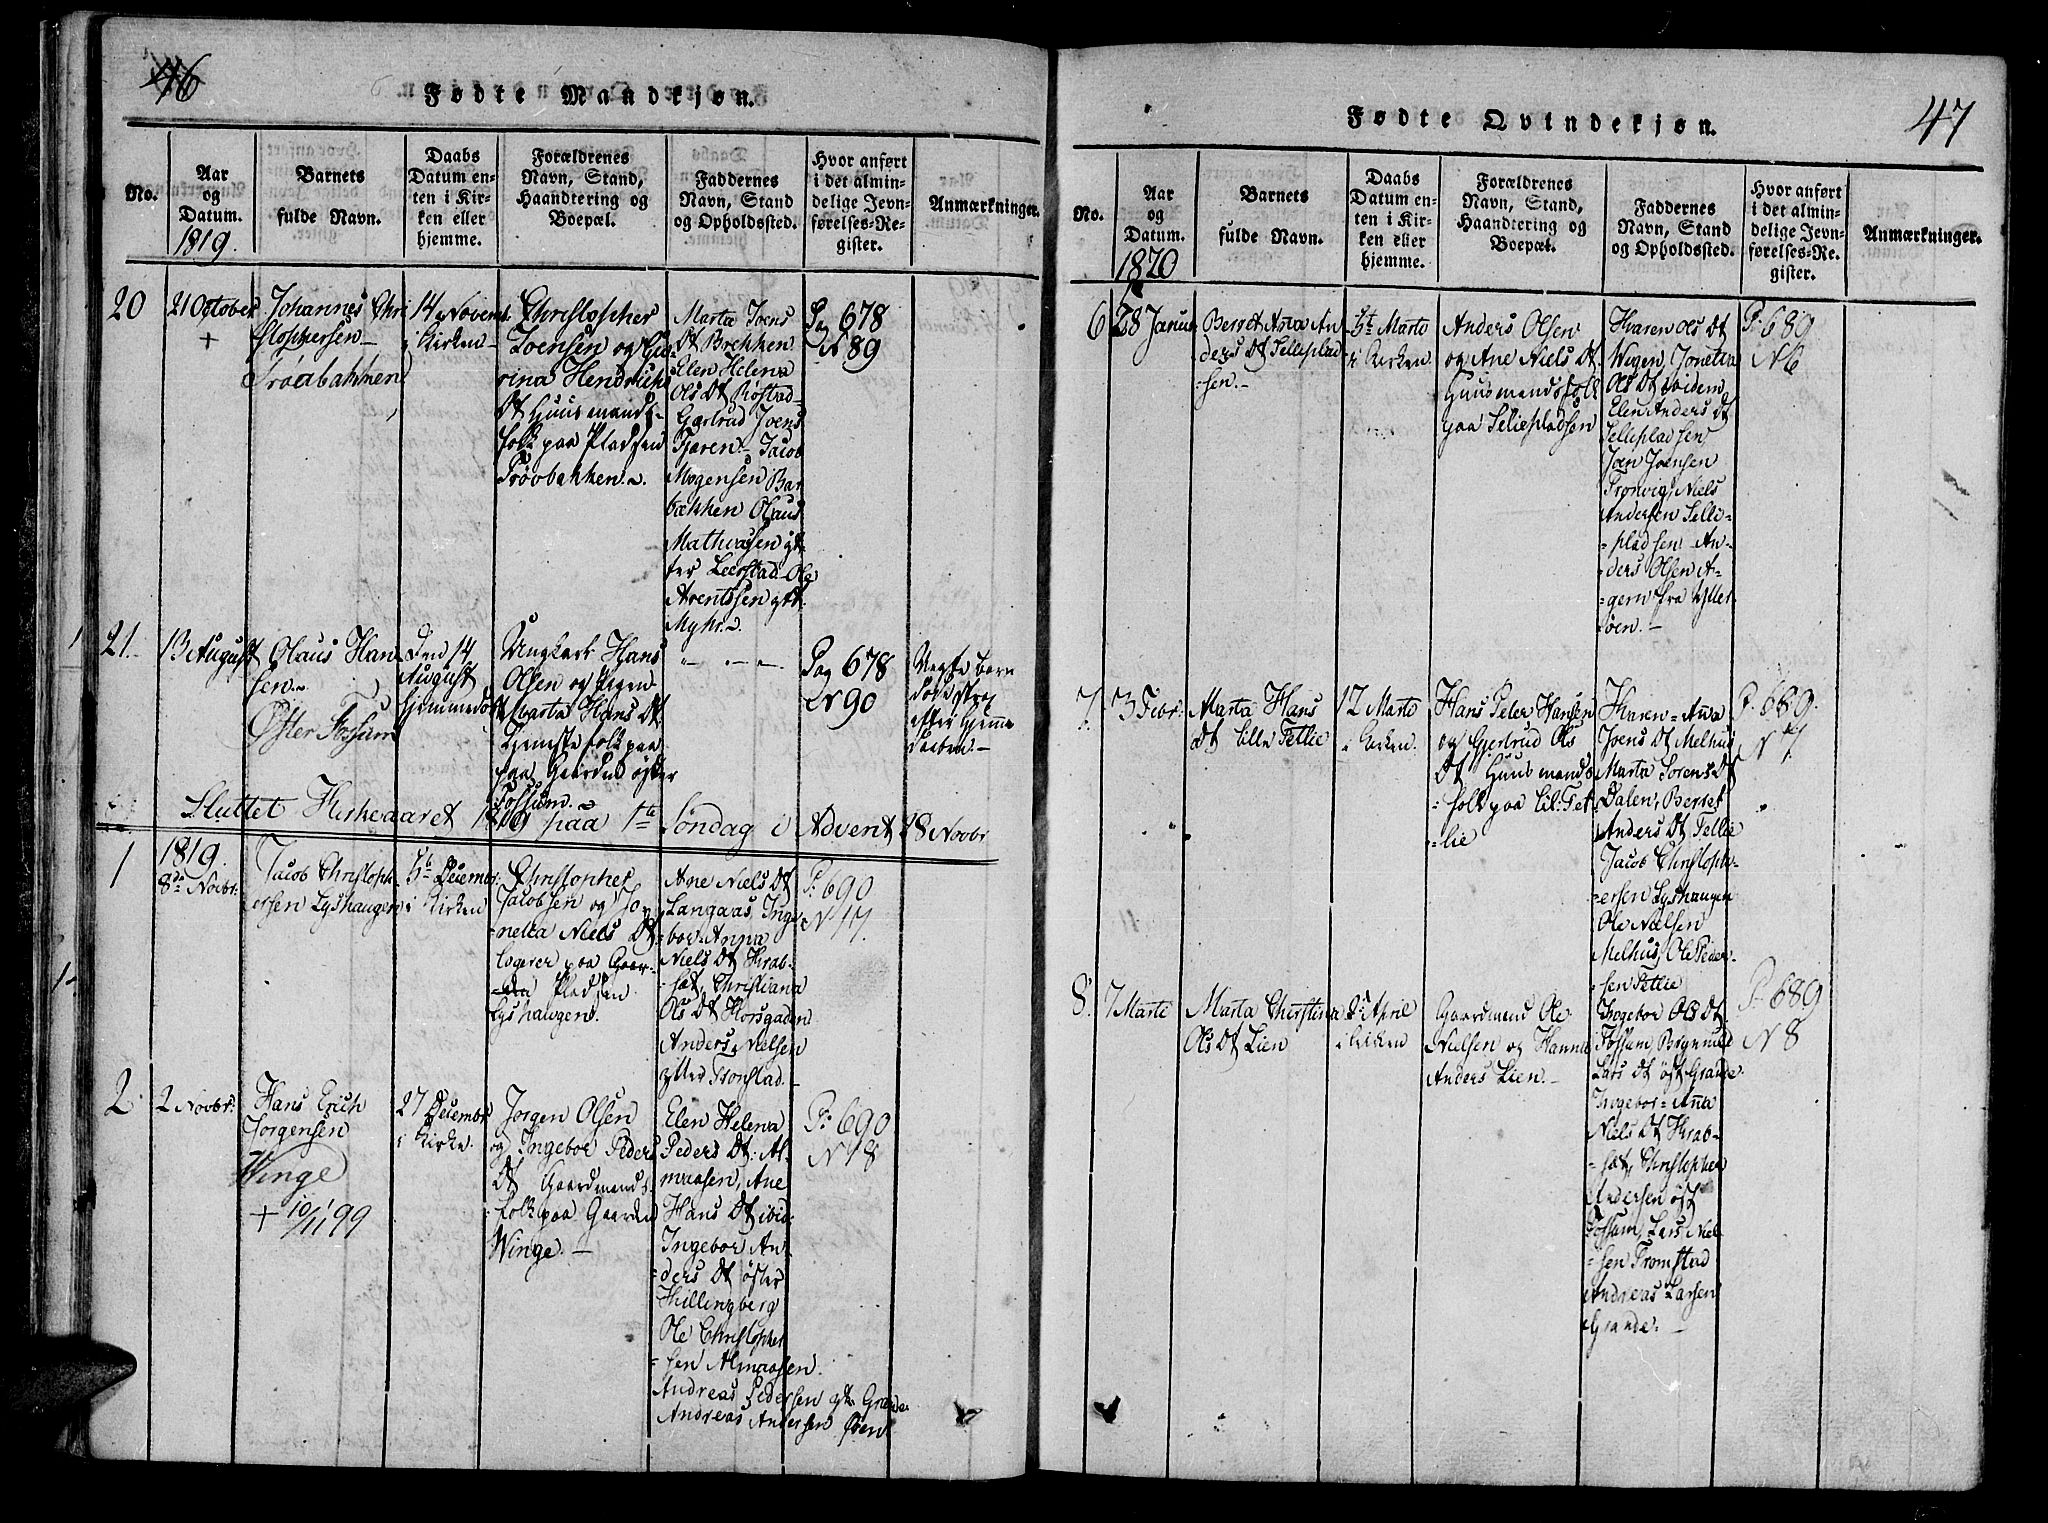 46
Fødte Mandkjøn.
No.
Aar
og
Datum.
1819.
Barnets
fulde Navn.
Daabs
Datum en-
ten i Kir-
ken eller
hjemme.
Forældrenes
Navn, Stand,
Haandtering og
Boepæl.
Faddernes
Navn, Stand
og Opholdssted.
Hvor anført
i det almin-
delige Jevn-
førelses-Re-
gister.
Anmærkninger.
20
21 October
+
Johannes Chri
stophersen
Trøabakken
14 Novemb.
i Kirken
Christopher
Joensen og
rina Hendrichs
Dt Huusmands-
folk paa Pladsen
Trøobakken.
Marta Joens
Dt Brekken
Elen Helena
Ols Dt Røstad
Gertrud Joens
Tjaren. Jacob
Mogensen Bar
bækken Olaus
Mathiasen yt
ter Leerstad Ole
Arentssen ytt.
Myhr.
Pag 678
N 89
21.
13 August
Olaus Han
sen.
Øster Fossum
Den 14
August
hjemmedøbt
Ungkarl Hans
Olsen og Pigen
Marta Hans Dt.
tjenestefolk paa
paa Gaarden øster
Fossum.
Pag 678
N 90
Uægte barn
døde strax
efter hjemme
daaben
Sluttet Kirkeaaret 1819 paa 1te Søndag i Advent 28 Novbr
1
1819.
8de Novbr:
Jacob Christoph
ersen Lyshaugen
5te Decembr:
i Kirken
Christopher
Jacobsen og Jo
netta Niels Dt
logerer paa Gaar-
den Pladsen
Lyshaugen.
Ane Niels Dt
Langaas, Inge
bor Anna
Niels Dt Krab-
sæt, Christiana
Ols Dt Korsgaden
Anders Nielsen
ytter Tronstad.
P: 690
N 17.
2.
2 Novbr:
Hans Erich
Jørgensen
Winge
+ 10/11 99
27 Decembr
i Kirke.
Jørgen Olsen
og Ingebor Peders
Dt Gaardmands-
folk paa Gaarden
Winge.
Elen Helena
Peders Dt: Al
maasen, Ane
Hans Dt ibid:
Ingebor An
ders Dt øster
Killingberg
Ole Christopher
sen Almaasen.
Andreas Pedersen ytt. Grande
Andreas Andersen Øien
P: 690
N 18
47
Fødte Qvindekjøn.
No.
Aar
og
Datum.
1820
Barnets
fulde Navn.
Daabs
Datum en-
ten i Kir-
ken eller
hjemme.
Forældrenes
Navn, Stand,
Haandtering og
Boepæl.
Faddernes
Navn, Stand
og Opholdssted.
Hvor anført
i det almin-
delige Jevn-
førelses-Re-
gister.
Anmærkninger.
6
28 Janua
Beret Ana An
ders Dt Selleplad
sen.
5te Marts
i Kirken
Anders Olsen
og Ane Niels Dt
Huusmandsfolk
paa Selliepladsen
Karen Ols Dt
Wegen, Jonetta
Ols Dt ibidem
Elen Anders Dt
Sellepladsen
Joen Joensen
Tronvig, Niels
Andersen Selle-
pladsen An-
ders Olsen A-
gern fra Ytter
øen.
P: 689
N 6
7.
3 Febr:
Marta Hans
Dt lille Tellie
12 Marts
i Kirken
Hans Peter Hansen
og Gjertrud Ols
Dt Huusmands
folk paa lil: Tel
lie
Karen Ana
Joens Dt Melhus
Marta Sorens Dt
Dalen, Beret
Anders Dt Tellie
Jacob Christoph-
ersen Lyshaugen
Ole Nielsen
Melhus, Ole Peder-
sen Tellie
P. 689.
N 7
8.
7 Marts
Marta Christina
Ols Dt Lien
2n April
i Kirken
Gaardmand Ole
Nielsen og Hanna
Anders Lien.
Ingebor Ols Dt.
Fossum, Brynnild
Lars Dt øst Grande.
Ingebor Ana
Niels Dt Krab-
sæt, Christopher
Andersen øst
Fossum, Lars Niel
sen Tromstad
Andreas Larsen
Grande.
P: 689
N 8